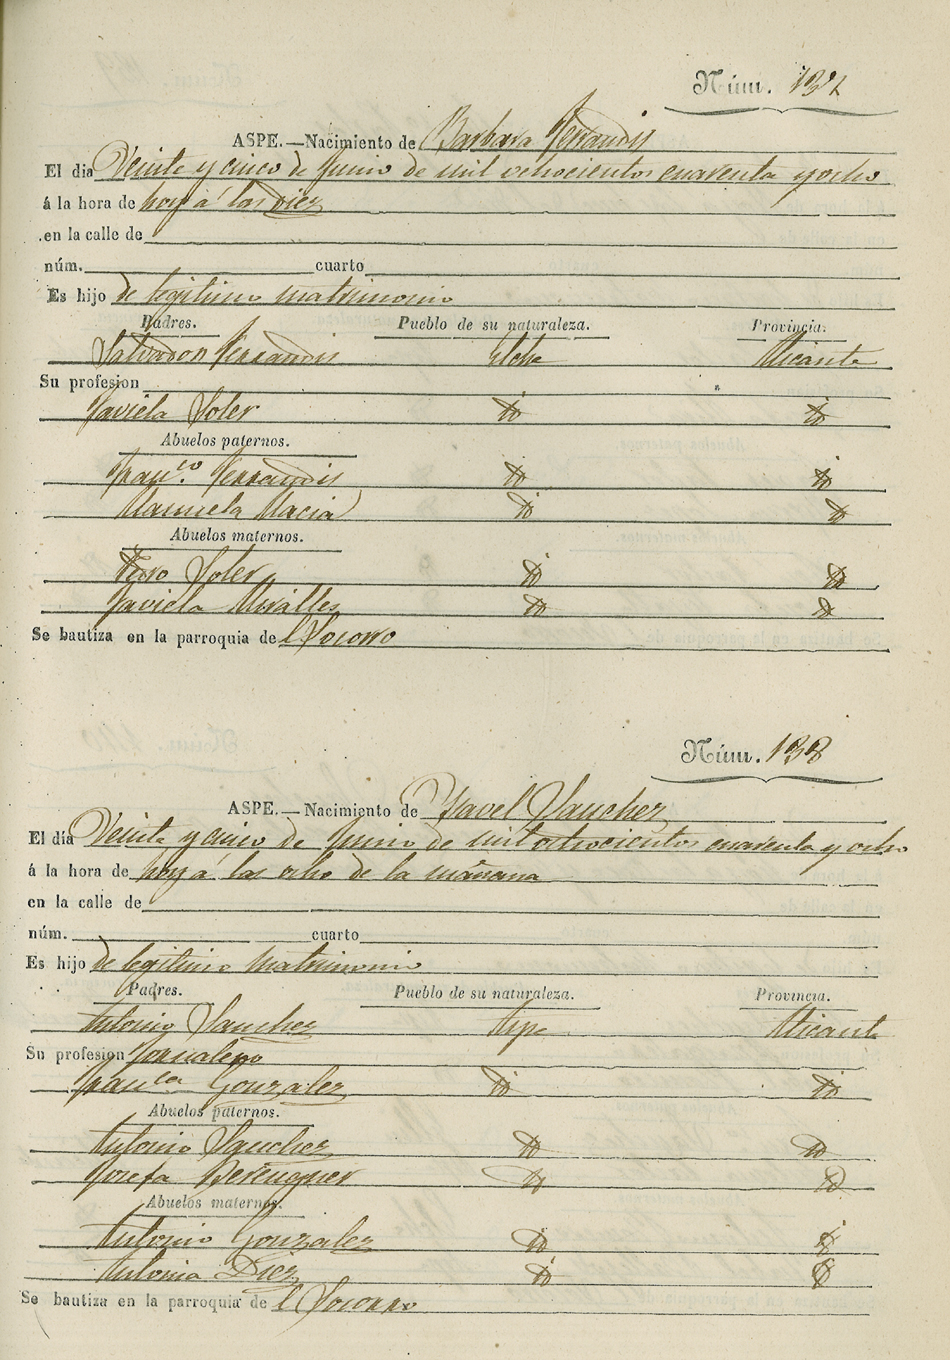 Núm. 137
ASPE.—Nacimiento de Barbara Ferrandis
El dia Veinte y cinco de Junio de mil ochocientos cuarenta y ocho
á la hora de hoy á las diez
en la calle de
núm. cuarto
Es hijo de legitimo matrimonio
Padres. Pueblo de su naturaleza. Provincia.
Salvador Ferrandis Elche Alicante
Su profesion
Gaviela Soler id id
Abuelos paternos.
Fran.co Ferrandis id id
Manuela Macia id id
Abuelos maternos.
Soler id id
Gaviela Miralles id id
Se bautiza en la parroquia de l Socorro
Núm. 138
ASPE.—Nacimiento de Ysavel Sanchez
El día Veinte y cinco de Junio de mil ochocientos cuarenta y ocho
á la hora de hoy á las ocho de la mañana
en la calle de
núm. cuarto
Es hijo de legitimo matrimonio
Padres. Pueblo de su naturaleza. Provincia.
Antonio Sanchez Aspe Alicante
Su profesion Jornalero
Fran.ca Gonzalez id id
Abuelos paternos.
Antonio Sanchez id id
Josefa Berenguer id id
Abuelos maternos.
Antonio Gonzalez id id
Antonia Diez id id
Se bautiza en la parroquia de l Socorro